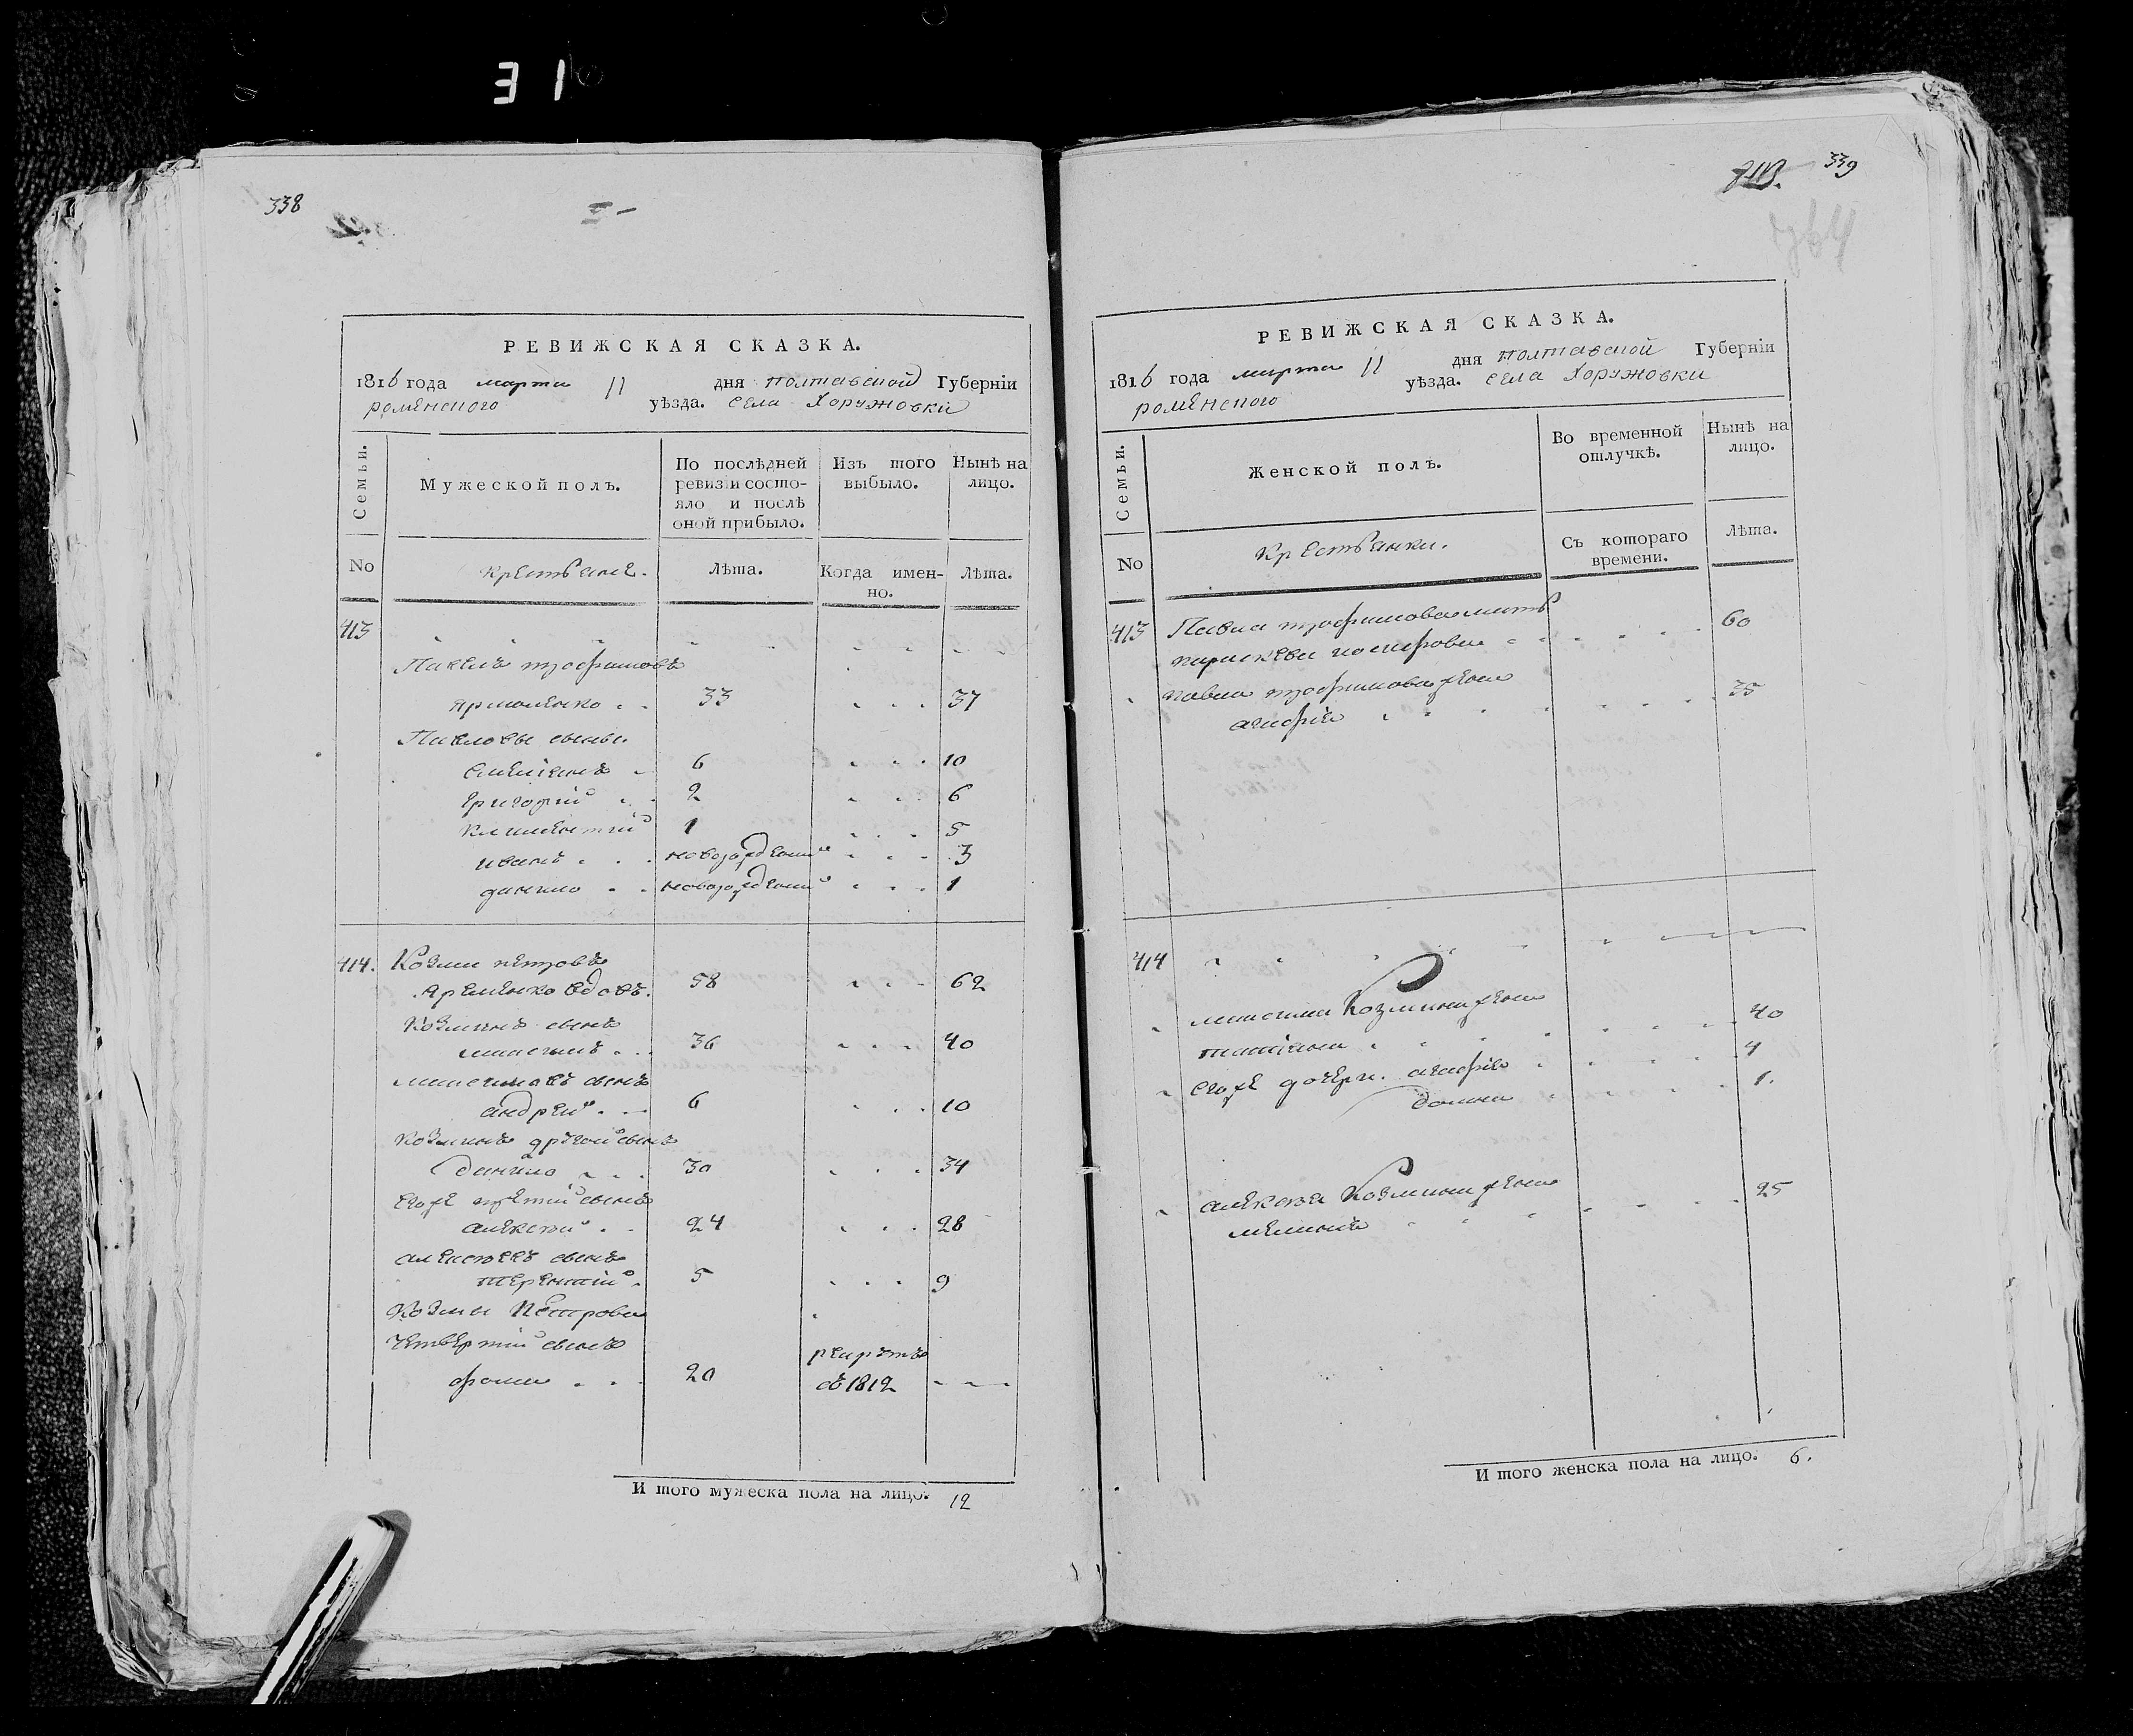 338
РЕВИЖСКАЯ СКАЗКА.
1816 года марта 11 дня полтавской Губерніи
роменского уѣзда. села Хоружовки
Семьи.
Мужеской полъ.
По послѣдней ревизіи состо-
яло и послѣ
оной прибыло.
Изъ того
выбыло.
Нынѣ на
лицо.
No
крестьяне.
Лѣта.
Когда имен-
но.
Лѣта.
413
Павелъ трофимовъ
ярмоленко 33 37
Павловы сыны
емеліанъ 6 10
григорій 2 6
климентій 1 5
иванъ новорождений 3
данило новорождений 1
414. Козма петровъ
яременко вдовъ. 58 62
Козминъ сынъ
максимъ 36 40
максимовъ сынъ
андрей 6 10
козминъ другой сынъ
данило 30 34
егоже третій сынъ
алексей 24 28
алексеевъ сынъ
терентій 5 9
Козмы Петрова
четвертій сынъ
фома 20 рекрутъ
въ 1812
И того мужеска пола на лицо. 12
339
764
РЕВИЖСКАЯ СКАЗКА.
1816 года марта 11 дня полтавской Губерніи
роменского уѣзда. села Хоружовки
Семьи.
Женской полъ.
Во временной
отлучкѣ.
Нынѣ на
лицо.
No
крестьянки.
Съ котораго
времени.
Лѣта.
413 Павла трофимова мать
параскева 60
павла трофимова жена
агафія 35
414
максима Козмина жена
татіана 40
егоже дочери. агафія 4
домна 1.
алексея Козмина жена
меланія 25
И того женска пола на лицо. 6.